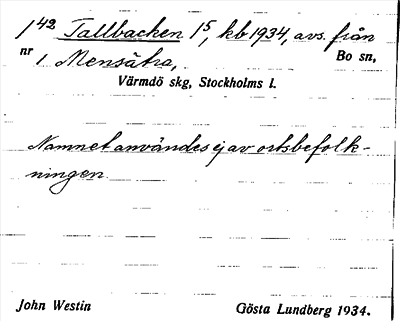 1⁴² Tallbacken 1⁵, kb 1934, avs. från
nr 1 Mensätra, Bo sn,
Värmdö skg, Stockholms l.
Namnet användes ej av ortsbefolk-
ningen.
John Westin Gösta Lundberg 1934.